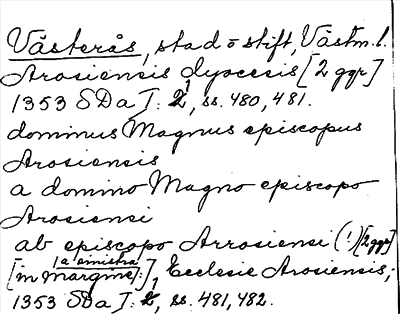 Västerås, stad o stift, Västm. l.
Arosiensis dyocesis [2 ggr]
1353 SDa I: 2, ss. 480, 481.
dominus Magnus episcopus
Arosiensis
a domino Magno episcopo
Arosiensi
ab episcopo Arrosiensi (!) [2 ggr]
[in margine a sinistra:], Ecclesie Arosiensis,
1353 SDa I: 2, ss. 481, 482.